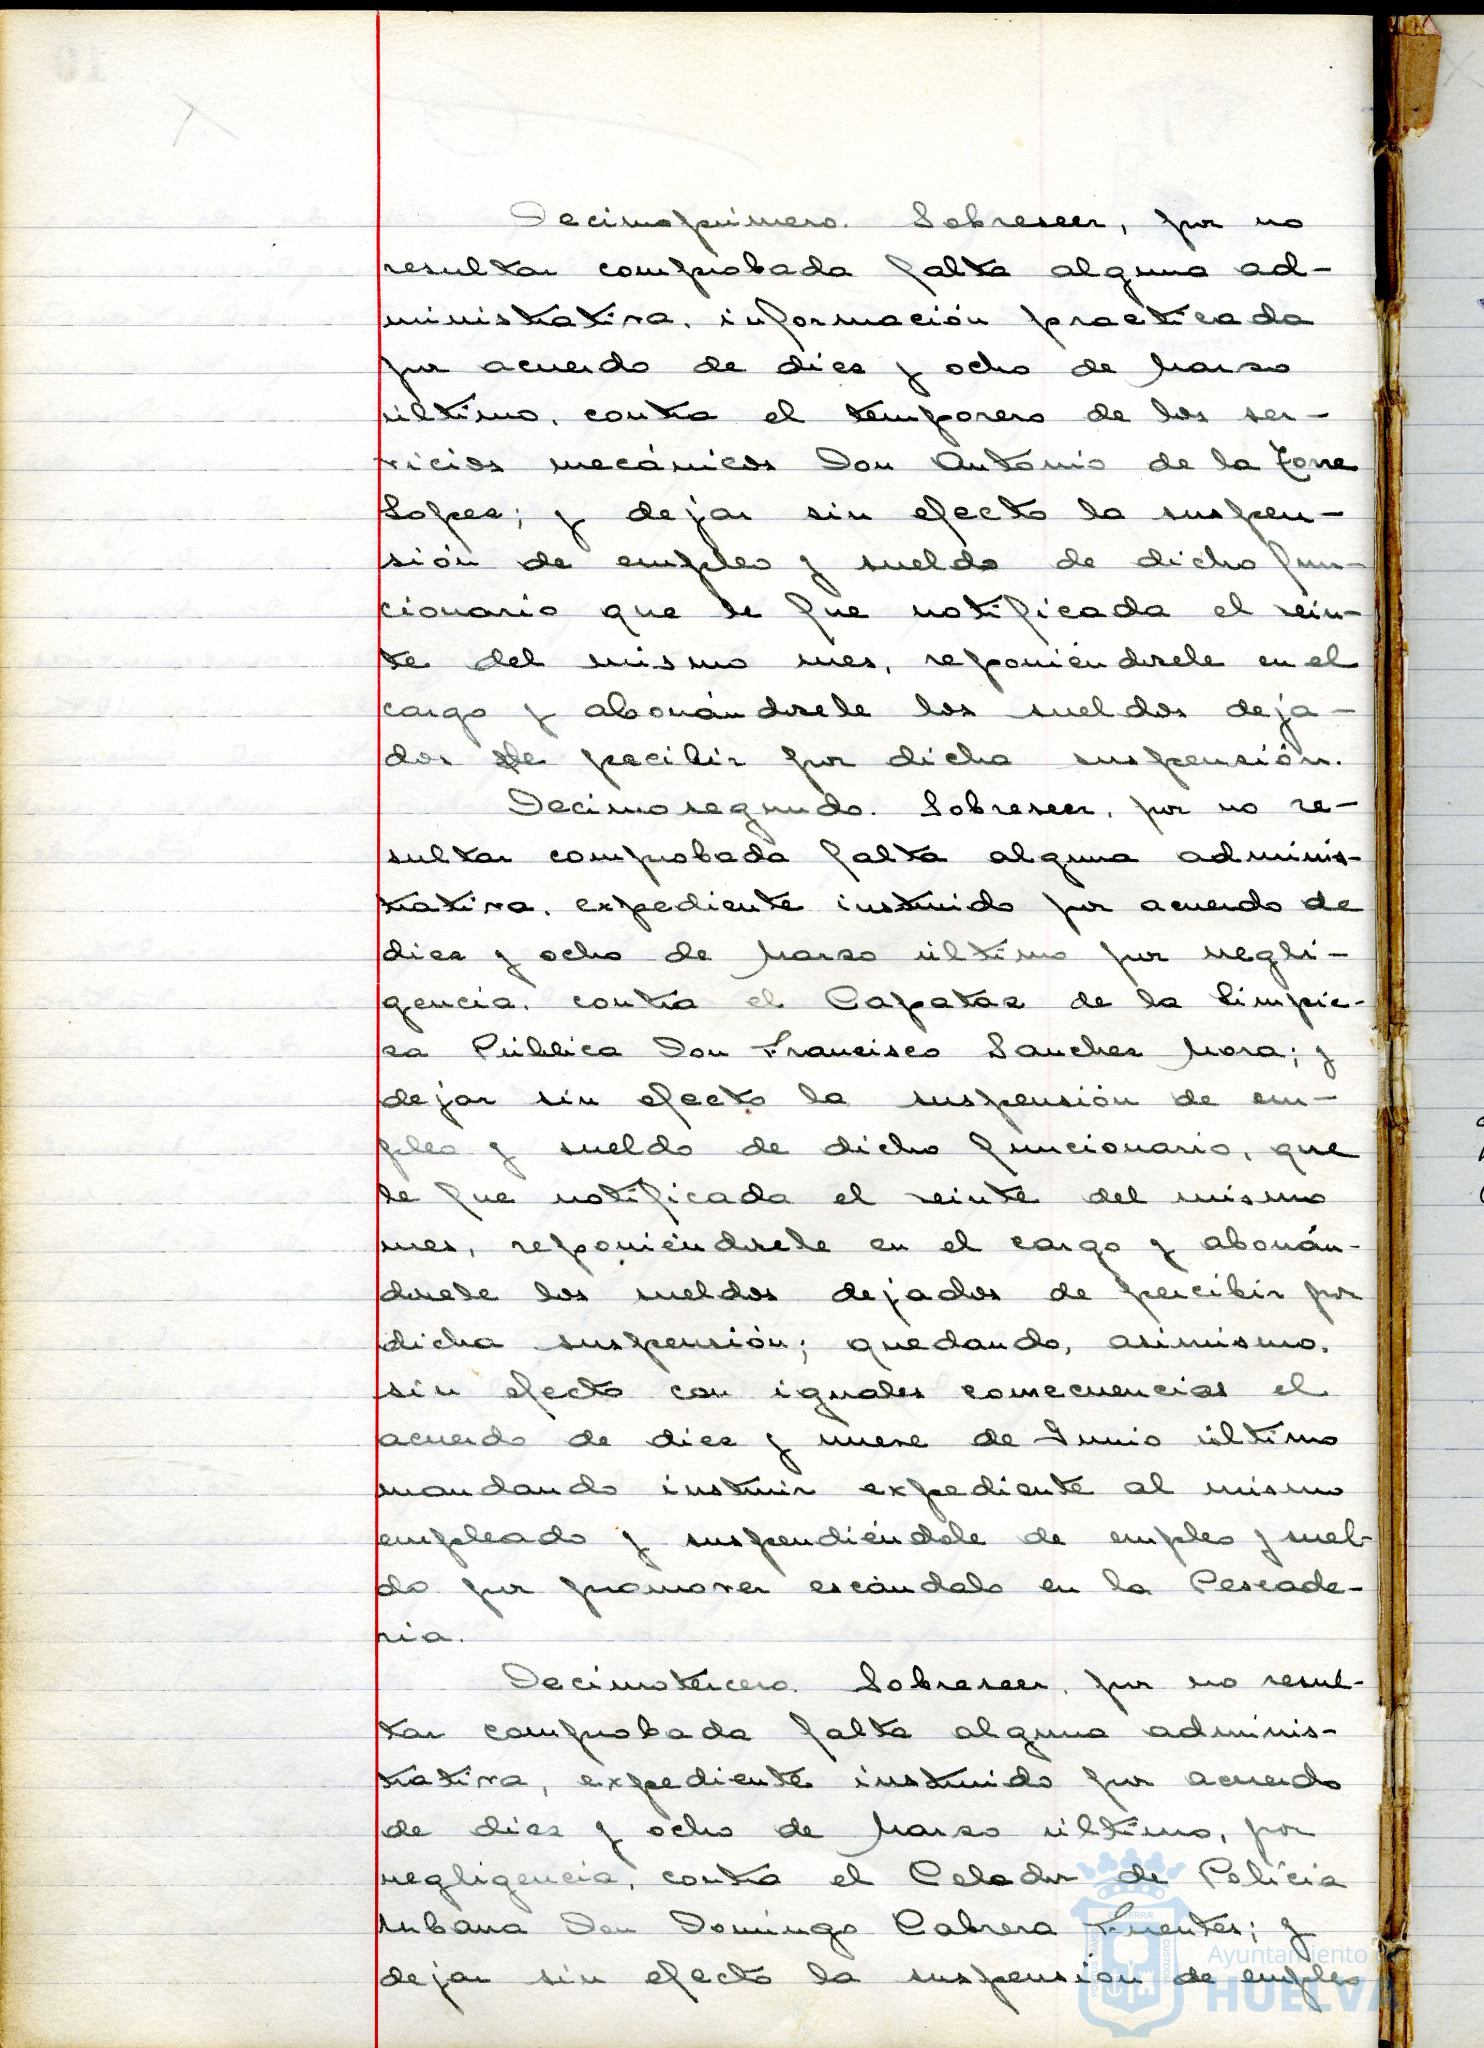 Decimoprimero. Sobreseer, por no
resultar comprobada falta alguna ad-
ministrativa, información practicada
por acuerdo de diez y ocho de Marzo
último, contra el temporero de los ser-
vicios mecánicos Don Antonio de la Torre
Lopez; y dejar sin efecto la suspen-
sión de empleo y sueldo de dicho fun-
cionario que le fue notificada el vein-
te del mismo mes, reponiéndosele en el
cargo y abonándosele los sueldos deja-
dos de pecibir por dicha suspensión.
Decimosegundo. Sobreseer, por no re-
sultar comprobada falta alguna adminis-
trativa, expediente instruido por acuerdo de
diez y ocho de Marzo último por negli-
gencia, contra el Capataz de la Limpie-
za Pública Don Francisco Sanchez Mora; y
dejar sin efecto la suspensión de em-
pleo y sueldo de dicho funcionario, que
le fue notificada el veinte del mismo
mes, reponiéndosele en el cargo y abonán-
dosele los sueldos dejados de percibir por
dicha suspensión; quedando, asimismo,
sin efecto con iguales consecuencias el
acuerdo de diez y nueve de Junio último
mandando instruir expediente al mismo
empleado y suspendiéndole de empleo y suel-
do por promover escándalo en la Pescade-
ria.
Decimotercero. Sobreseer, por no resul-
tar comprobada falta alguna adminis-
trativa, expediente instruido por acuerdo
de diez y ocho de Marzo último, por
negligencia, contra el Celador de Policía
Urbana Don Domingo Cabrera Fuentes; y
dejar sin efecto la suspension de empleo
Ayuntamiento de
HUELVA